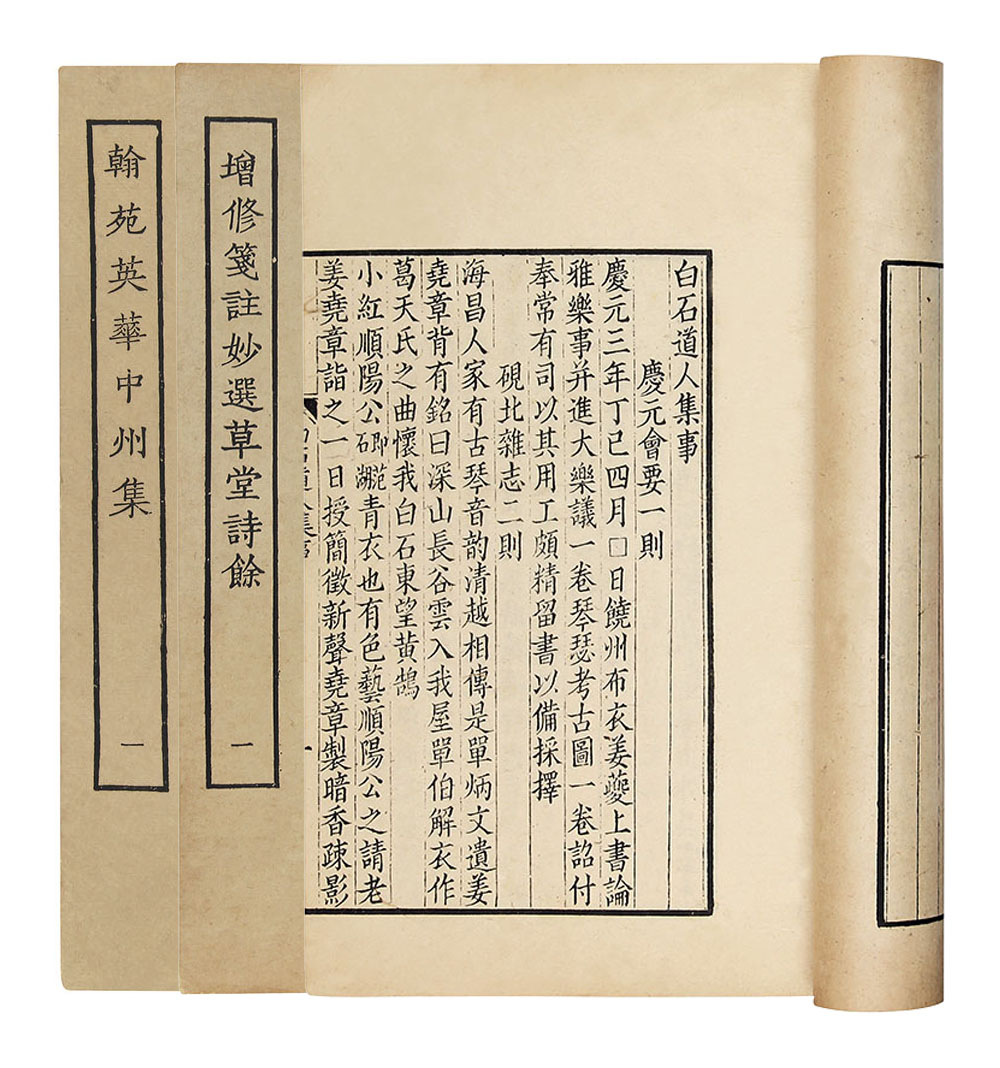 白石道人集事
慶元會要一則
慶元三年丁巳四月□日饒州布衣姜夔上書論
雅樂事并進大樂議一卷琴瑟考古圖一卷詔付
奉常有司以其用工頗精留書以備採擇
硯北雜志二則
海昌人家有古琴音韵清越相傳是單炳文遺姜
堯章背有銘曰深山長谷雲入我屋單伯解衣作
葛天氏之曲懷我白石東望黃鵠
小紅順陽公青衣也有色藝順陽公之請老
姜堯章詣之一日授簡徵新聲堯章製暗香疎影
增修箋註妙選草堂詩餘
一
翰苑英華中州集
一